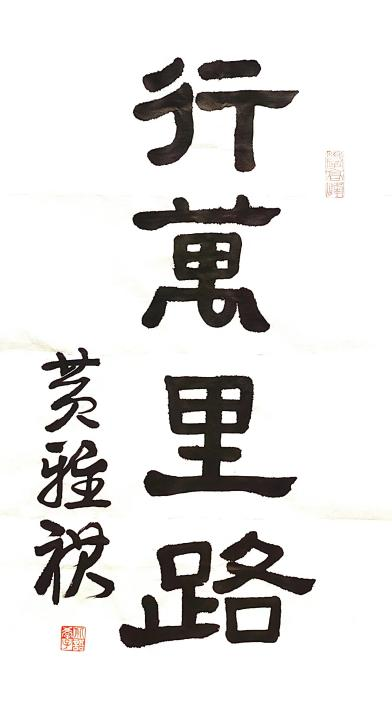 行萬里路
黄雅祺